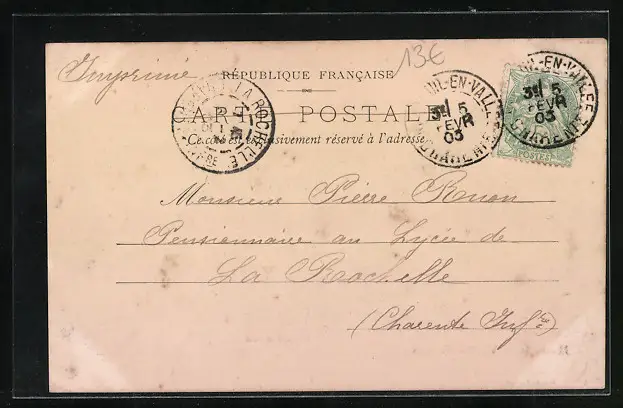 Imprimé
13€
RÉPUBLIQUE FRANÇAISE
CARTE POSTALE
Ce côté est exclusivement réservé à l'adresse
LA ROCHELLE
-EN-VALLÉE
3E / 5
FEVR
03
CHARENTE
-EN-VALLÉE
3E / 5
FEVR
03
CHARENTE
POSTES
Monsieur Pierre
Pensionnaire au Lycée de
La Rochelle
(Charente Infre)